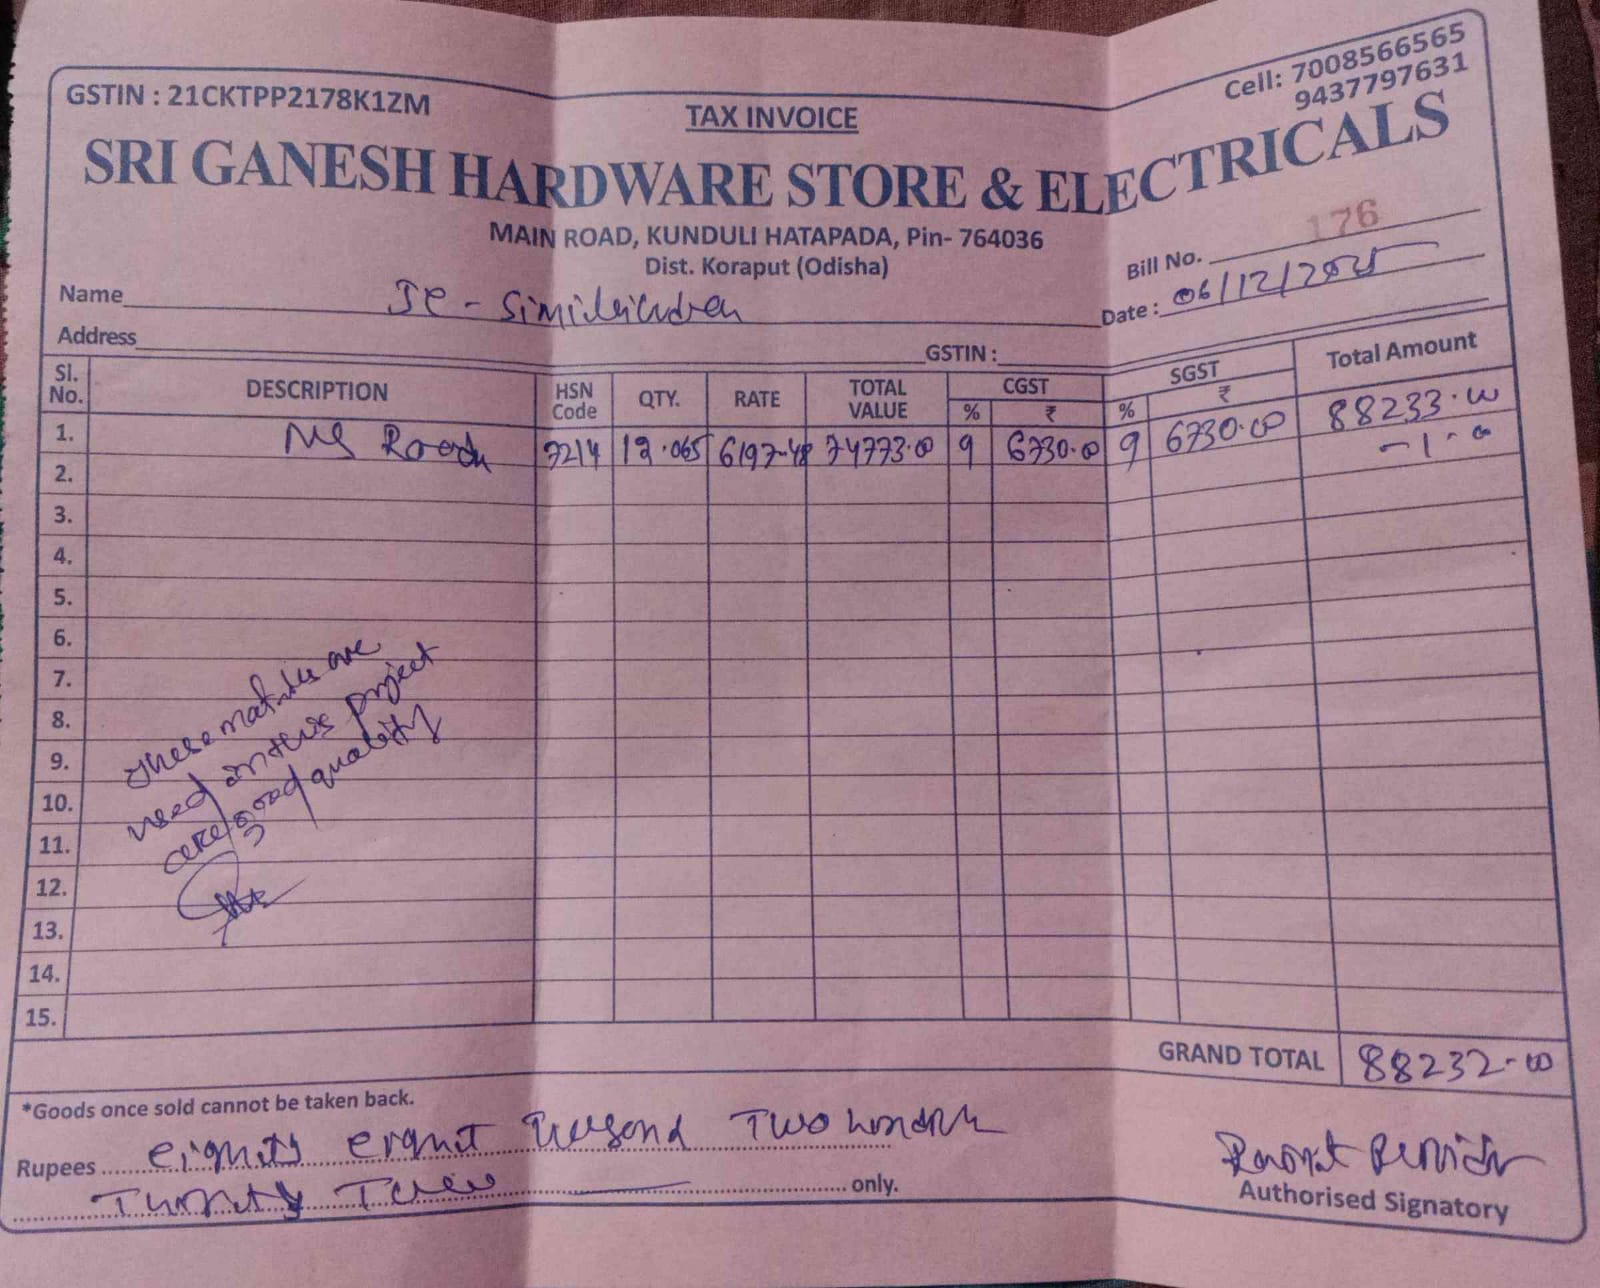 GSTIN : 21CKTPP2178K1ZM
Cell: 7008566565
9437797631
TAX INVOICE
SRI GANESH HARDWARE STORE & ELECTRICALS
MAIN ROAD, KUNDULI HATAPADA, Pin- 764036
Dist. Koraput (Odisha)
Bill No. 176
Name JE -
Date : 06/12/2025
Address
GSTIN :
Sl. No. DESCRIPTION HSN Code QTY. RATE TOTAL VALUE CGST % ₹ SGST % ₹ Total Amount
1. MS 7214 12.065 6197-48 74773.00 9 6730.00 9 6730.00 88233.00
2. -1-00
3.
4.
5.
6.
7.
8.
9.
10.
11.
12.
13.
14.
15.
These are
used in this project
are good quality
GRAND TOTAL 88232-00
*Goods once sold cannot be taken back.
Rupees Two
only.
Authorised Signatory